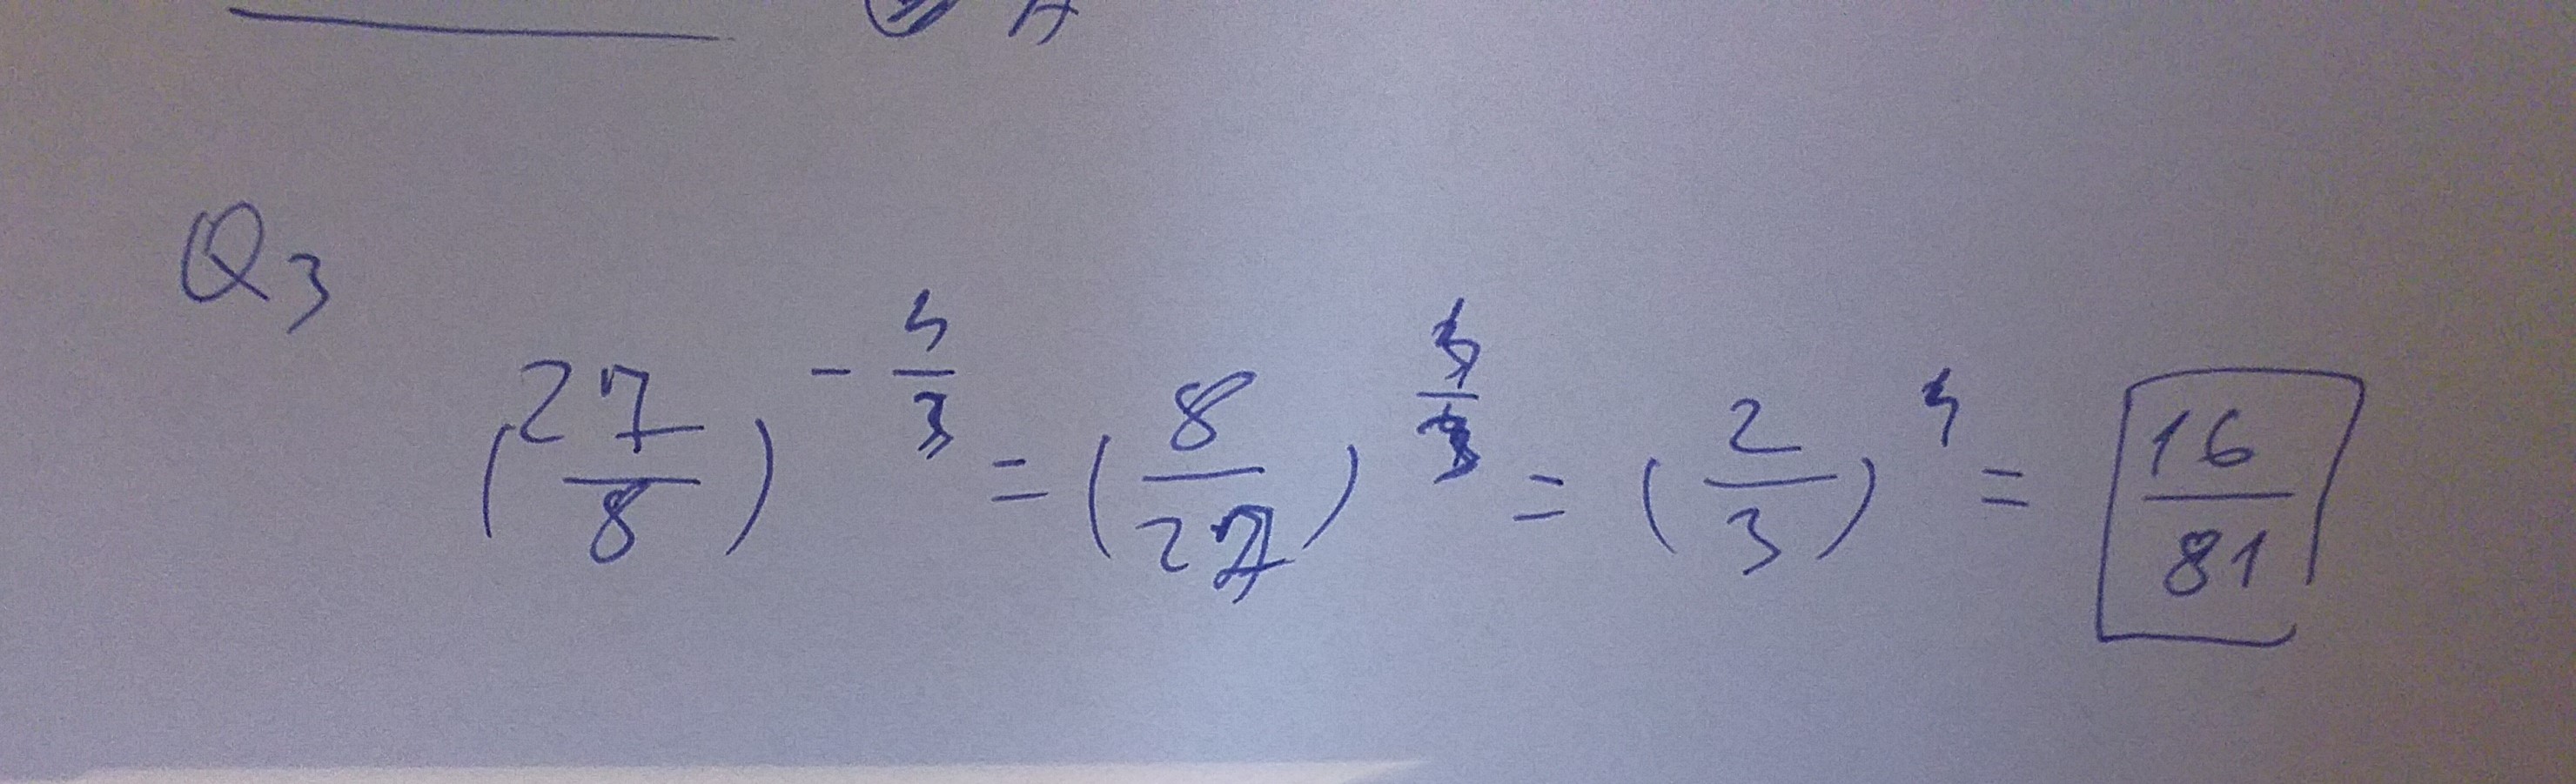 Q3
(27/8)^(-4/3) = (8/27)^(4/3) = (2/3)^4 = 16/81